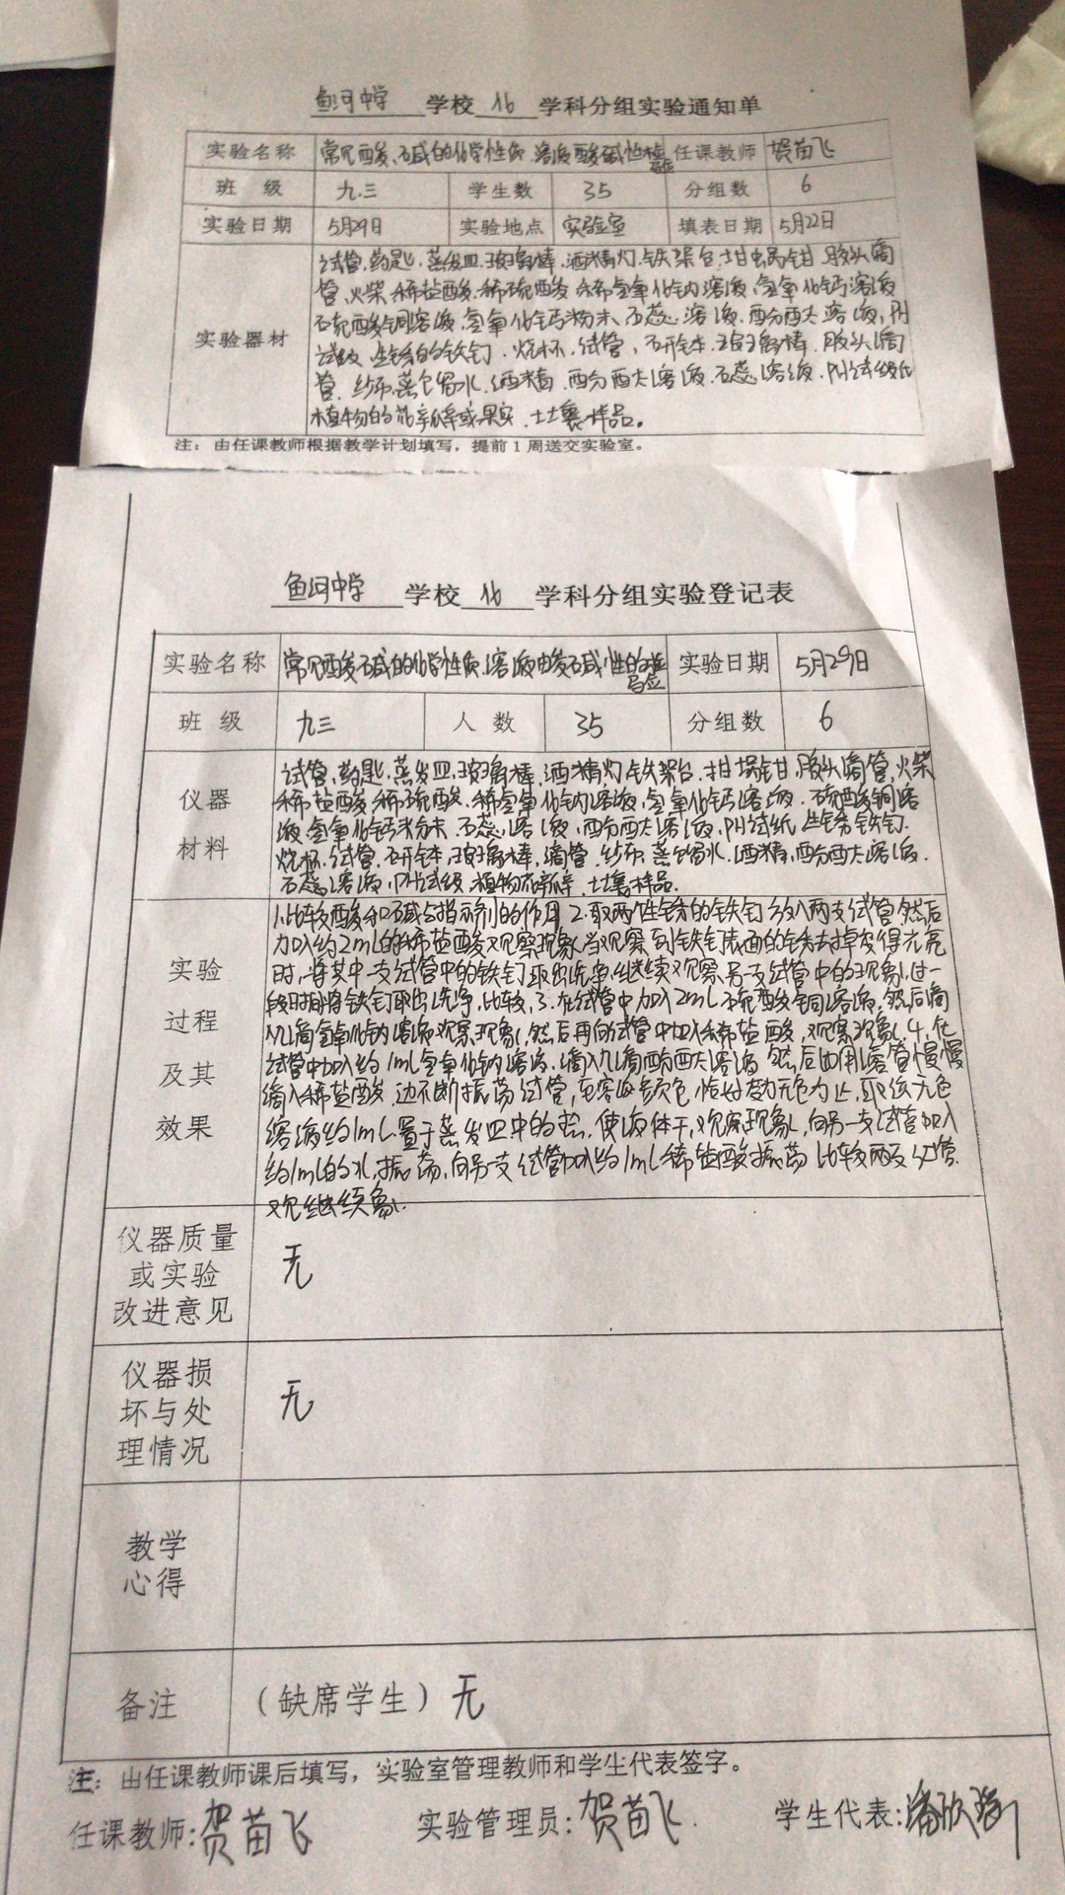 鱼河中学 学校 化 学科分组实验通知单
实验名称 常见酸、碱的化学性质 溶液酸碱性检验 任课教师 贺苗飞
班 级 九.三 学生数 35 分组数 6
实验日期 5月29日 实验地点 实验室 填表日期 5月22日
实验器材
试管.药匙.蒸发皿.玻璃棒.酒精灯.铁架台.坩埚钳.胶头滴
管.火柴.稀盐酸.稀硫酸.稀氢氧化钠溶液.氢氧化钙溶液
石硫酸铜溶液.氢氧化钙粉末.石蕊溶液.酚酞溶液.PH
试纸.生锈的铁钉.烧杯.试管.研钵.玻璃棒.胶头滴
管.纱布.蒸馏水.酒精.酚酞溶液.石蕊溶液.PH试纸
植物的花瓣或果实.土壤样品。
注：由任课教师根据教学计划填写，提前1周送交实验室。
鱼河中学 学校 化 学科分组实验登记表
实验名称 常见酸碱的化学性质.溶液酸碱性的检验 实验日期 5月29日
班 级 九三 人 数 35 分组数 6
仪器
材料
试管.药匙.蒸发皿.玻璃棒.酒精灯.铁架台.坩埚钳.胶头滴管.火柴
稀盐酸.稀硫酸.稀氢氧化钠溶液.氢氧化钙溶液.硫酸铜溶
液.氢氧化钙粉末.石蕊溶液.酚酞溶液.PH试纸.生锈铁钉.
烧杯.试管.研钵.玻璃棒.滴管.纱布.蒸馏水.酒精.酚酞溶液.
石蕊溶液.PH试纸.植物花瓣.土壤样品.
实验
过程
及其
效果
1.比较酸和碱与指示剂的作用 2.取两个生锈的铁钉放入两支试管然后
加入约2mL的稀盐酸观察现象.当观察到铁钉表面的锈去掉变得光亮
时,将其中一支试管中的铁钉取出洗净.继续观察另一支试管中的现象.过一
段时间将铁钉取出洗净.比较.3.在试管中加入2mL硫酸铜溶液.然后滴
入几滴氢氧化钠溶液观察现象.然后再向试管中加入稀盐酸,观察现象.4.在
试管中加入约1mL氢氧化钠溶液.滴入几滴酚酞溶液.然后用滴管慢慢
滴入稀盐酸.边不断振荡试管,至溶液颜色恰好变为无色为止,取该无色
溶液约1mL.置于蒸发皿中的热.使液体干,观察现象.向另一支试管加入
约1mL的水.振荡.向另一支试管加入约1mL稀盐酸振荡.比较两支试管.
仪器质量
或实验
改进意见
无
仪器损
坏与处
理情况
无
教学
心得
备注 （缺席学生）无
注：由任课教师课后填写，实验室管理教师和学生代表签字。
任课教师:贺苗飞 实验管理员:贺苗飞 学生代表:潘欣